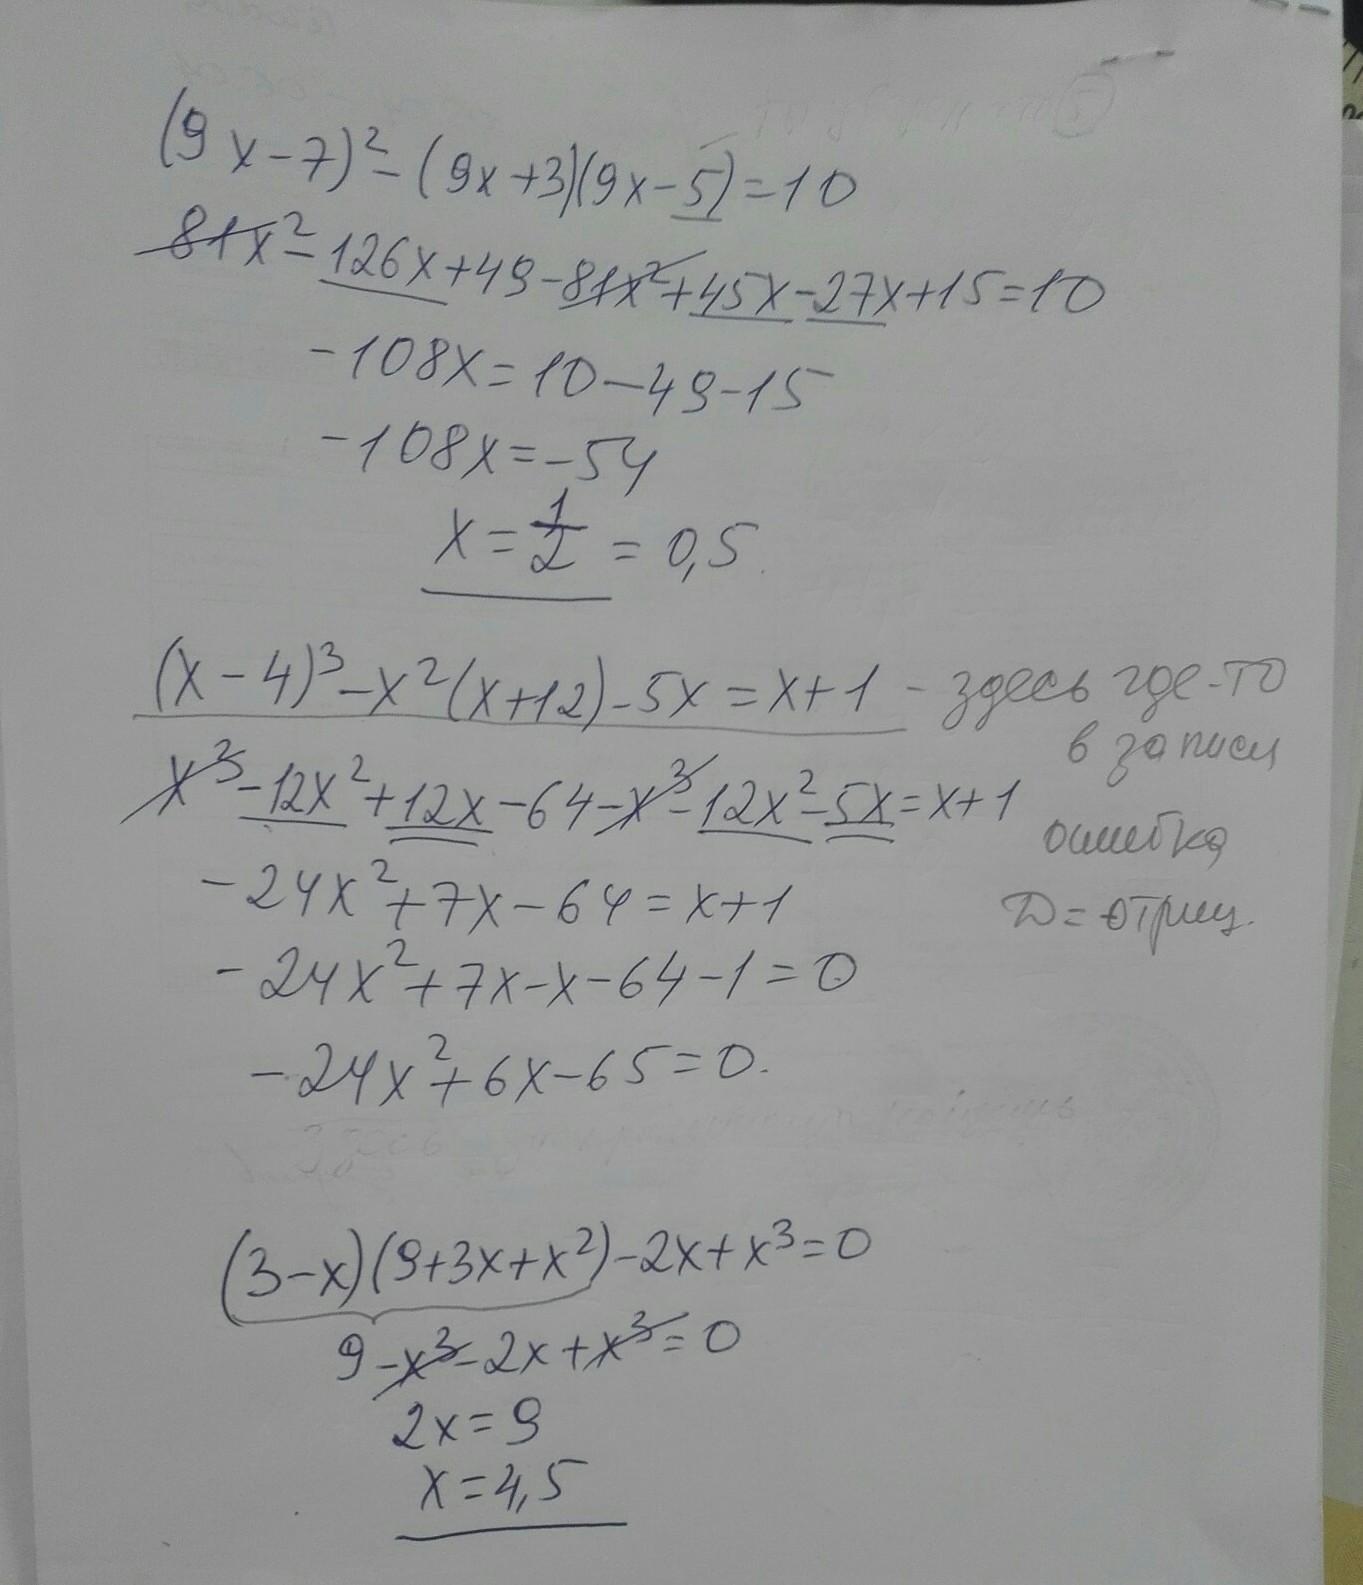 (9x-7)²-(9x+3)(9x-5)=10
81x²-126x+49-81x²+45x-27x+15=10
-108x=10-49-15
-108x=-54
x=1/2=0,5
(x-4)³-x²(x+12)-5x=x+1 - здесь где-то
в записи
x³-12x²+12x-64-x³-12x²-5x=x+1
ошибка
-24x²+7x-64=x+1
D=отриц.
-24x²+7x-x-64-1=0
-24x²+6x-65=0.
(3-x)(9+3x+x²)-2x+x³=0
9-x³-2x+x³=0
2x=9
x=4,5